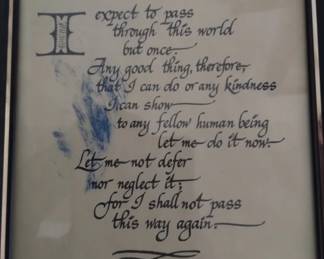 I expect to pass
through this world
but once.
Any good thing, therefore,
that I can do or any kindness
I can show
to any fellow human being
let me do it now.
Let me not defer
nor neglect it;
for I shall not pass
this way again.